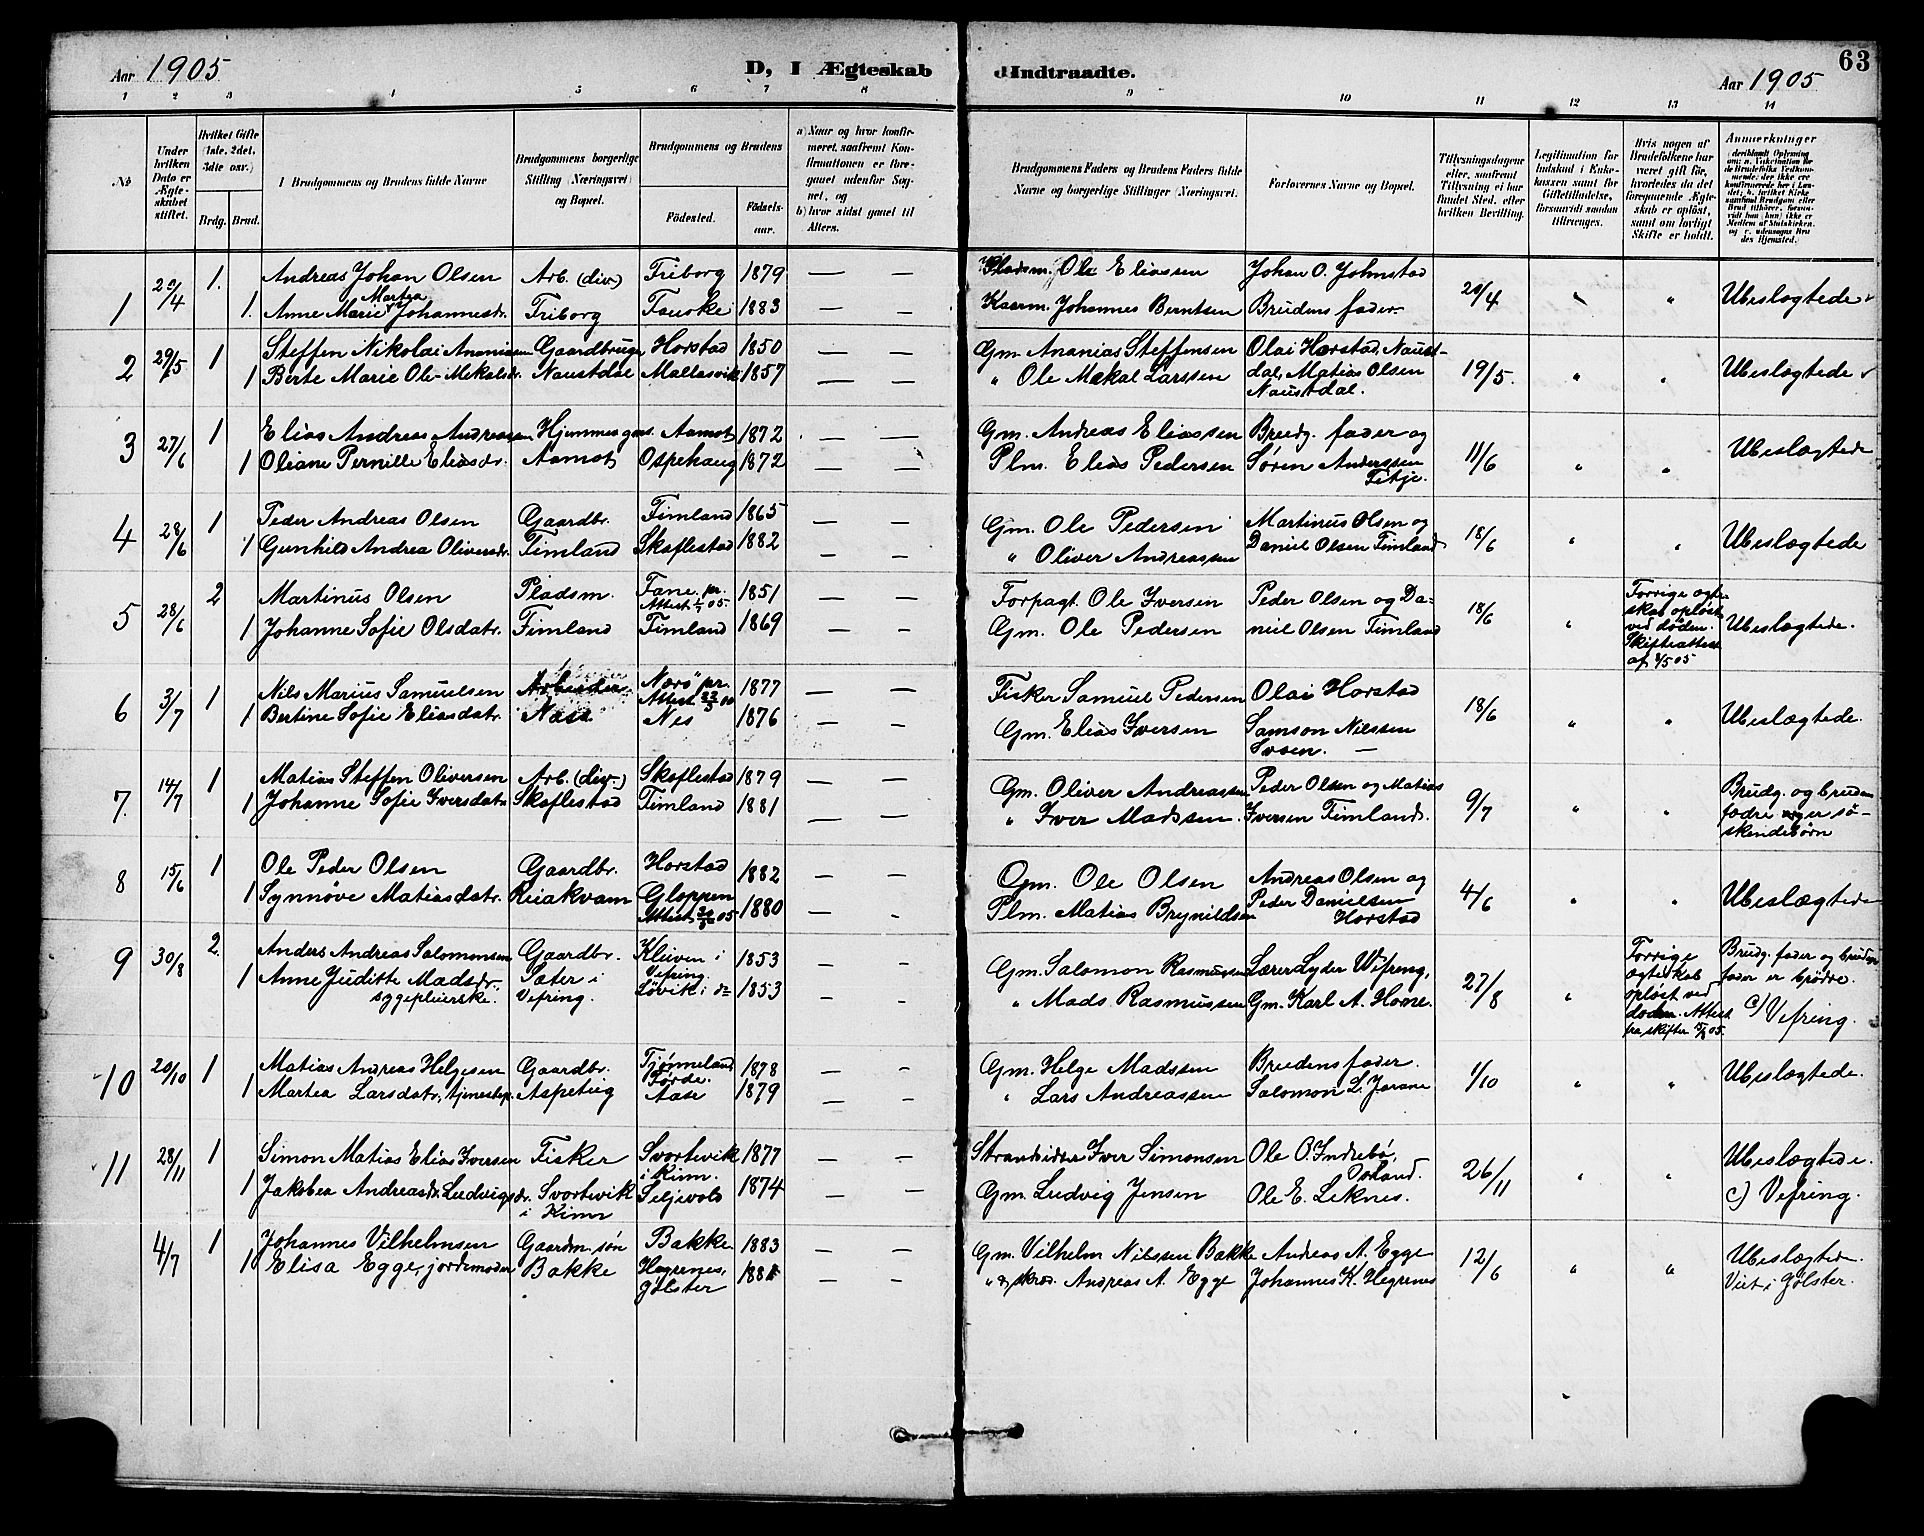 Aar 1905
D, I Ægteskab Indtraadte.
Aar 1905
63
1 2 3 4 5 6 7 8 9 10 11 12 13 14
No
Under hvilken Dato er Ægteskabet stiftet.
Hvilket Gifte (1ste, 2det, 3die osv.)
Brdg. Brud.
Brudgommens og Brudens fulde Navne
Brudgommens borgerlige Stilling (Næringsvei) og Bopæl.
Brudgommens og Brudens
Fødested.
Fødselsaar.
a) Naar og hvor konfirmeret, saafremt Konfirmationen er foregaaet udenfor Sognet, og
b) hvor sidst gaaet til Alters.
Brudgommens Faders og Brudens Faders fulde Navne og borgerlige Stillinger (Næringsvei).
Forlovernes Navne og Bopæl.
Tillysningsdagene eller, saafremt Tillysning ei har fundet Sted, efter hvilken Bevilling.
Legitimation for Indskud i Enkekassen samt for Giftetilladelse, forsaavidt saadan tiltrænges.
Hvis nogen af Brudefolkene har været gift før, hvorledes da det foregaaende Ægteskab er opløst, samt om lovligt Skifte er holdt.
Anmerkninger
1 20/4 1. Andreas Johan Olsen Arb. (div) Friborg 1879 — — Pladsm. Ole Eliassen Johan O. Johnstad 20/4 " " Ubeslægtede
1. Anne Marie Martea Johannesdr. Friborg Fauske 1883 — — Kaarm. Johannes Berntsen Brudens fader.
2 29/5 1 Steffen Nikolai Ananiassen Gaardbruger Horstad 1850 — — Gm. Ananias Steffensen Olai Horstad, Naust- 19/5. " " Ubeslægtede
1 Berte Marie Ole-Mekalsdr. Naustdal Mallasvik 1857 — — " Ole Mekal Larssen dal, Matias Olsen
Naustdal.
3 27/6 1 Elias Andreas Andreassen Hjemmes gm s. Aamot 1872 — — Gm. Andreas Eliassen Brudg. fader og 11/6 " " Ubeslægtede
1 Oliane Pernille Eliasdr. Aamot Ospehaug 1872 — — Plm. Elias Pedersen Søren Anderssen
Fitje.
4 28/6 1 Peder Andreas Olsen Gaardbr. Fimland 1865 — — Gm. Ole Pedersen Martinus Olsen og 18/6 " " Ubeslægtede
1 Gunhild Andrea Oliversdr. Fimland Skaflestad 1882 — — " Oliver Andreassen Daniel Olsen Fimland
5 28/6 2 Martinus Olsen Pladsm. Fane pr. Attest 1/5 05. 1851 — — Forpagt. Ole Iversen Peder Olsen og Da- 18/6 " Forrige ægte-
1 Johanne Sofie Olsdatr. Fimland Fimland 1869 — — Gm. Ole Pedersen niel Olsen Fimland skab opløst Ubeslægtede.
ved døden.
Skifteattest
af 4/5 05
6 3/7 1 Nils Marius Samuelsen Arbeider Nærø pr. 1877 — — Fisker Samuel Pedersen Olai Horstad 18/6 " " Ubeslægtede.
Attest 23/5 00
1 Bertine Sofie Eliasdatr. Næss Nes 1876 — — Gm. Elias Iversen Samson Nilssen
Svoen. —
7. 14/7 1 Matias Steffen Oliversen Arb. (div) Skaflestad 1879 — — Gm. Oliver Andreassen Peder Olsen og Matias 9/7 " " Brudg. og brudens
1 Johanne Sofie Iversdatr. Skaflestad Fimland 1881 — — " Iver Madssen Iversen Fimland. fædre er sø-
skendebørn
8 15/6 1 Ole Peder Olsen Gaardbr. Horstad 1882 — — Gm. Ole Olsen Andreas Olsen og 4/6 " " Ubeslægtede
1 Synnøve Matiasdatr. Reiakvam Gloppen 1880 — — Plm. Matias Brynildsen Peder Danielsen
Horstad
9 30/8 2. Anders Andreas Salomonsen Gaardbr. Kleiven i 1853 — — Gm. Salomon Rasmussen Lærer Lyder Vefring, 27/8 " Forrige Brudg. fader og brudens
Vefring.
1 Anne Juditte Madsdr. Sæter i Løvik i do 1853 — — " Mads Rasmussen Gm. Karl A. Horne. ægteskab fader er brødre.
sygepleierske. Vefring. opløst ved c) Vefring.
døden. Attest
fra skifter
10 20/10 1 Matias Andreas Helgesen Gaardbr. Tjønneland 1878 — — Gm. Helge Madssen Brudens fader. 1/10 " " Ubeslægtede.
Førde.
1 Martea Larsdatr. tjenestep. Aspeteig Aase 1879 — — " Lars Andreassen Salomon L. Jarane
11 28/11 1 Simon Matias Elias Iversen Fisker Svortevik 1877 — — Strandsidder Iver Simonsen Ole O. Indrebø, 26/11 " " Ubeslægtede.
i Kinn.
1 Jakobea Andreasdr. Ludvigsdr. Svortevik Seljevold 1874 — — Gm. Ludvig Jensen Ole E. Leknes. c) Vefring.
i Kinn
4/7 1 Johannes Vilhelmsen Gaardm. søn Bakke 1883 — — Gm. Vilhelm Nilssen Bakke Andreas A. Egge 12/6 " " Ubeslægtede.
1 Elisa Egge, jordemoder Bakke Hegrenes, 1881 — — " & skræd. Andreas A. Egge Johannes K. Hegrenes Viet i Jølster.
Jølster